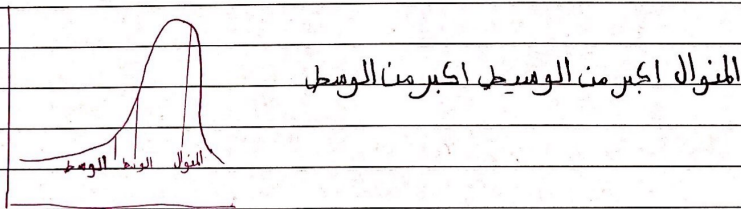 المنوال اكبر من الوسيط اكبر من الوسط
الوسط الوسيط المنوال